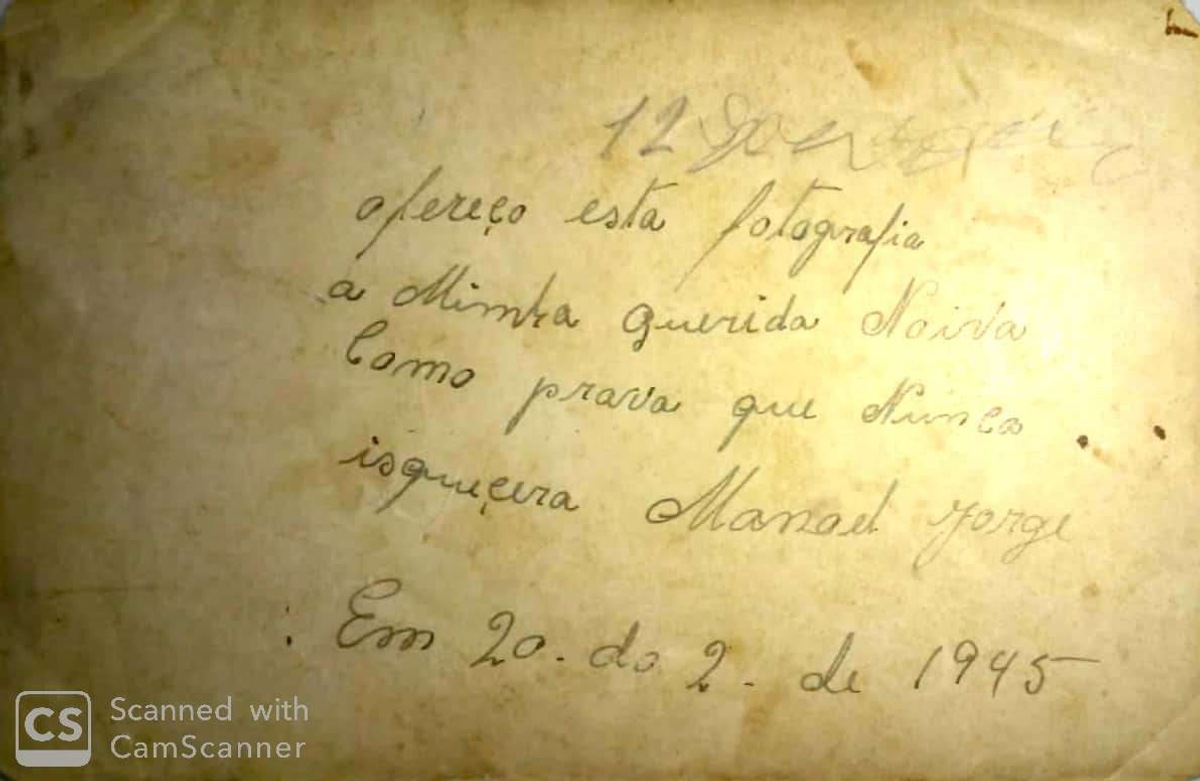 12
ofereço esta fotografia
a Minha querida Noiva
Como prova que Nunca
isqueçera Manoel Jorge
Em 20. do 2. de 1945
CS Scanned with
CamScanner